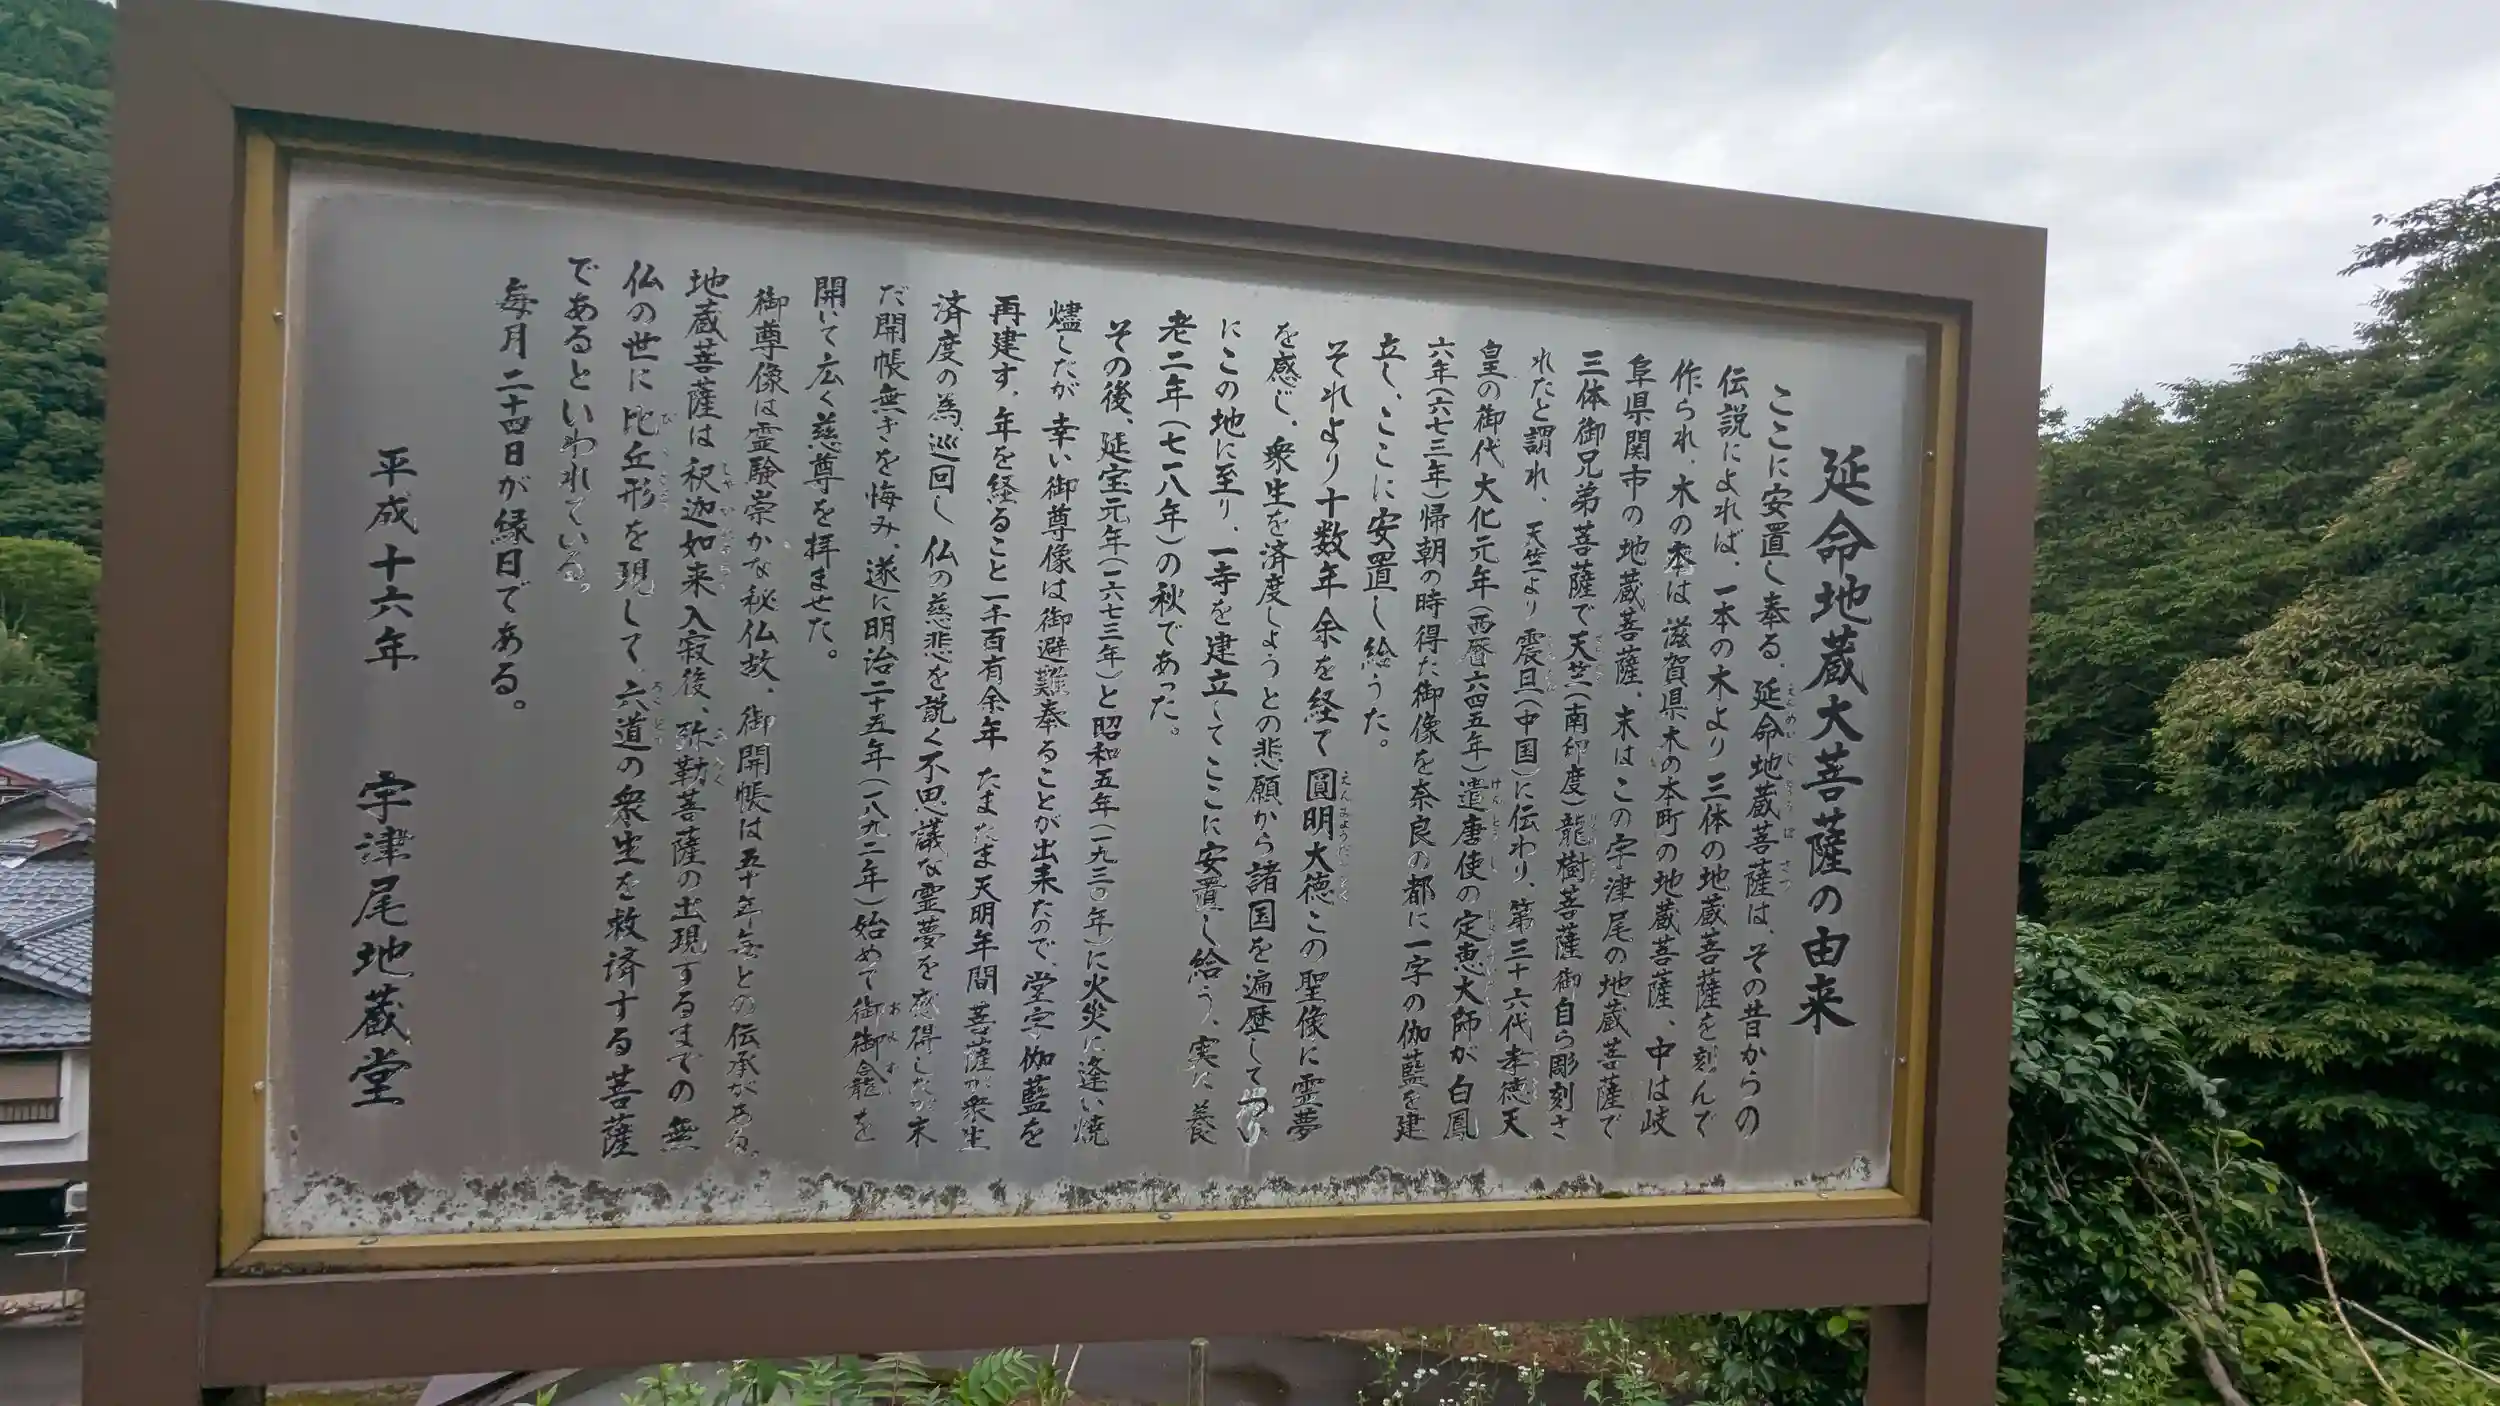 延命地蔵大菩薩の由来
ここに安置し奉る、延命地蔵菩薩は、その昔からの
伝説によれば、一本の木より三体の地蔵菩薩を刻んで
作られ、木の本は滋賀県木の本町の地蔵菩薩、中は岐
阜県関市の地蔵菩薩、末はこの宇津尾の地蔵菩薩で
三体御兄弟菩薩で天竺(南印度)龍樹菩薩御自ら彫刻さ
れたと謂れ、天竺より震旦(中国)に伝わり、第三十六代孝徳天
皇の御代大化元年(西暦六四五年)遣唐使の定恵大師が白鳳
六年(六七三年)帰朝の時得た御像を奈良の都に一字の伽藍を建
立し、ここに安置し給うた。
それより十数年余を経て圓明大徳この聖像に霊夢
を感じ、衆生を済度しようとの悲願から諸国を遍歴してつい
にこの地に至り、一寺を建立してここに安置し給う、実に養
老二年(七一八年)の秋であった。
その後、延宝元年(一六七三年)と昭和五年(一九三〇年)に火災に逢い焼
燼したが幸い御尊像は御避難奉ることが出来たので、堂宇伽藍を
再建す、年を経ること一千百有余年たまたま天明年間菩薩が衆生
済度の為、巡回し仏の慈悲を説く不思議な霊夢を感得したが未
だ開帳無きを悔み、遂に明治二十五年(一八九二年)始めて御御龕を
開いて広く慈尊を拝ませた。
御尊像は霊験崇かな秘仏故、御開帳は五十年毎との伝承がある。
地蔵菩薩は釈迦如来入寂後、弥勒菩薩の出現するまでの無
仏の世に比丘形を現して、六道の衆生を救済する菩薩
であるといわれている。
毎月二十四日が縁日である。
平成十六年 宇津尾地蔵堂